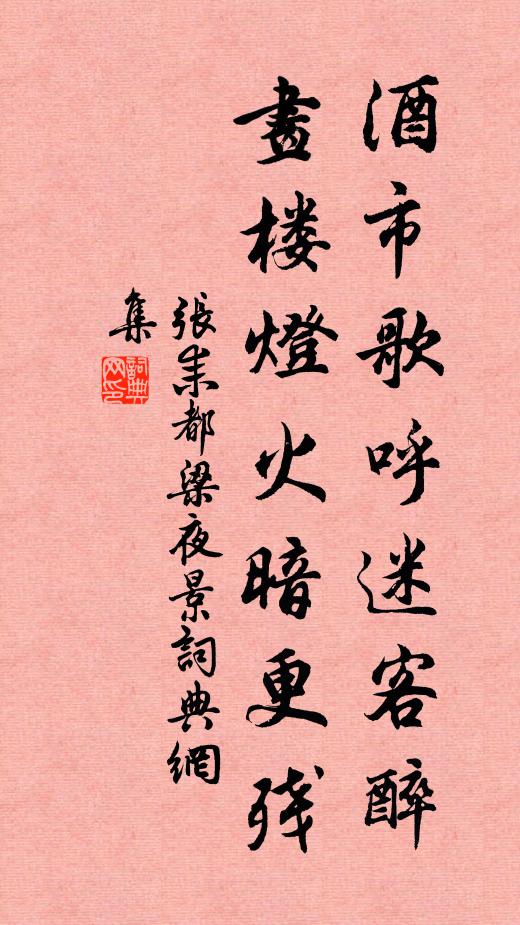 酒市歌呼迷客醉
畫楼燈火暗更残
張耒都梁夜景詞典網
集
詞典
网印